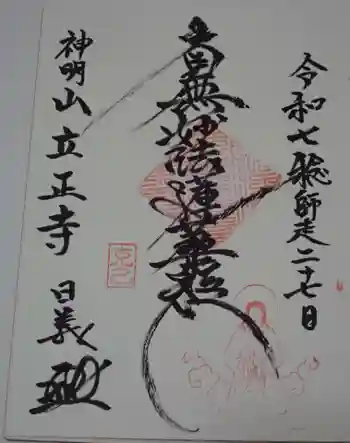 令和七年師走二十七日
南無妙法蓮華経
神明山立正寺
日義